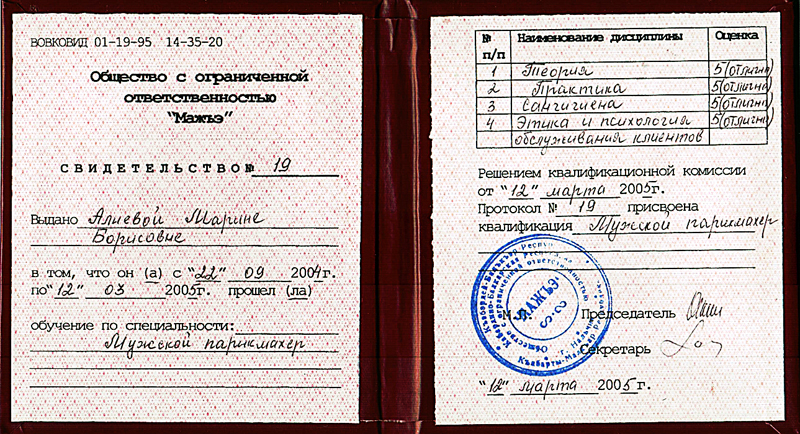 ВОВКОВИД 01-19-95 14-35-20
Общество с ограниченной
ответственностью
"Мажъэ"
СВИДЕТЕЛЬСТВО№ 19
Выдано Алиевой Марине
Борисовне
в том, что он (а) с "22" 09 2004г.
по "12" 03 2005г. прошел (ла)
обучение по специальности:
Мужской парикмахер
№ п/п Наименование дисциплины Оценка
1 Теория 5(отлично)
2 Практика 5(отлично)
3 Сангигиена 5(отлично)
4 Этика и психология 5(отлично)
обслуживания клиентов
Решением квалификационной комиссии
от "12" марта 2005г.
Протокол № 19 присвоена
квалификация Мужской парикмахер
МАЖЪЭ
г. Нальчик
М. Председатель
Секретарь
"12" марта 2005г.